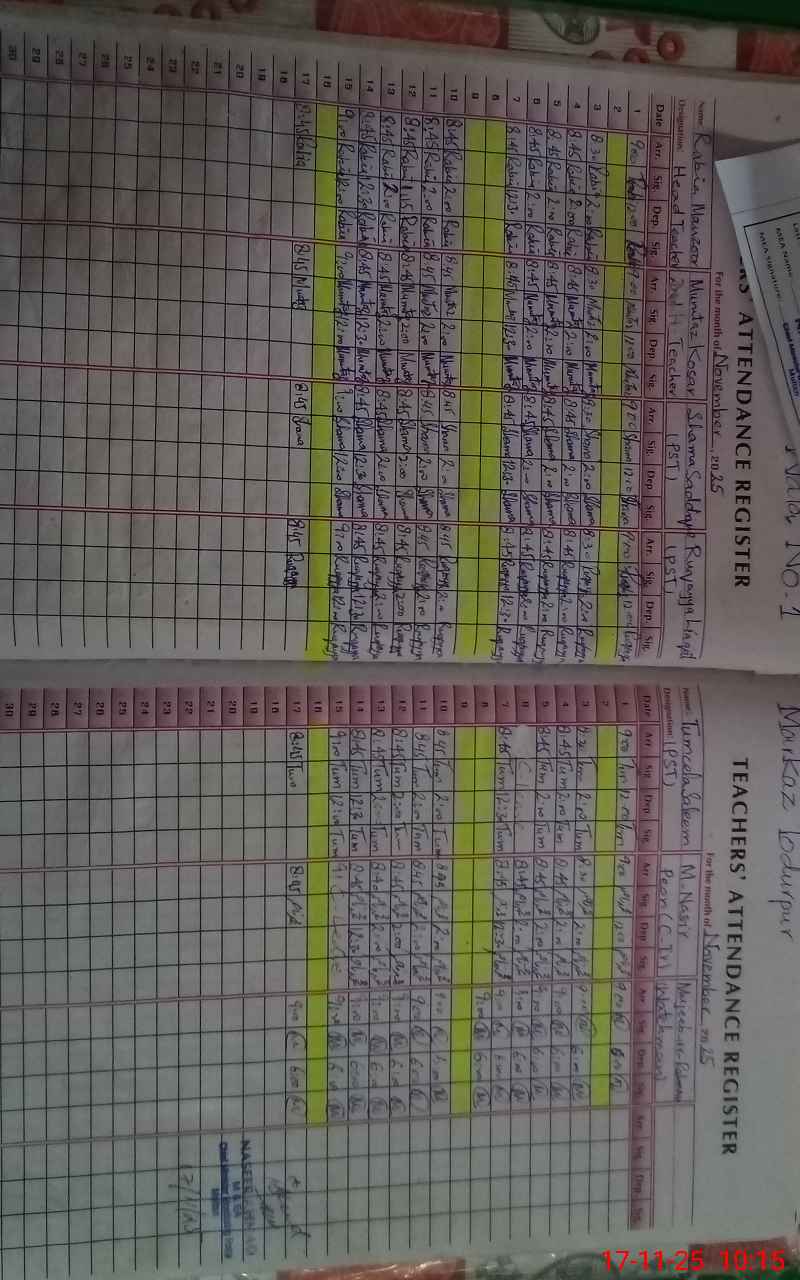 Wala No.1
TEACHERS' ATTENDANCE REGISTER
For the month of November, 2025
Name: Rabia Manzoor Mumtaz Kosar Shama Saddaqe Ruqayya Liaqat
Designation: Head Teacher 2nd H-Teacher (PST) (PST)
Date Arr. Sig. Dep. Sig. Arr. Sig. Dep. Sig. Arr. Sig. Dep. Sig. Arr. Sig. Dep. Sig.
1 9:00 Rabia 12:00 Rabia 9:00 Mumtaz 12:00 Mumtaz 9:00 Shama 12:00 Shama 9:00 Ruqayya 12:00 Ruqayya
2
3 8:30 Rabia 2:00 Rabia 8:30 Mumtaz 2:00 Mumtaz 8:30 Shama 2:00 Shama 8:30 Ruqayya 2:00 Ruqayya
4 8:45 Rabia 2:00 Rabia 8:45 Mumtaz 2:00 Mumtaz 8:45 Shama 2:00 Shama 8:45 Ruqayya 2:00 Ruqayya
5 8:45 Rabia 2:00 Rabia 8:45 Mumtaz 2:00 Mumtaz 8:45 Shama 2:00 Shama 8:45 Ruqayya 2:00 Ruqayya
6 8:45 Rabia 2:00 Rabia 8:45 Mumtaz 2:00 Mumtaz 8:45 Shama 2:00 Shama 8:45 Ruqayya 2:00 Ruqayya
7 8:45 Rabia 12:30 Rabia 8:45 Mumtaz 12:30 Mumtaz 8:45 Shama 12:30 Shama 8:45 Ruqayya 12:30 Ruqayya
8
9
10 8:45 Rabia 2:00 Rabia 8:45 Mumtaz 2:00 Mumtaz 8:45 Shama 2:00 Shama 8:45 Ruqayya 2:00 Ruqayya
11 8:45 Rabia 2:00 Rabia 8:45 Mumtaz 2:00 Mumtaz 8:45 Shama 2:00 Shama 8:45 Ruqayya 2:00 Ruqayya
12 8:45 Rabia Rabia 8:45 Mumtaz 2:00 Mumtaz 8:45 Shama 2:00 Shama 8:45 Ruqayya 2:00 Ruqayya
13 8:45 Rabia 2:00 Rabia 8:45 Mumtaz 2:00 Mumtaz 8:45 Shama 2:00 Shama 8:45 Ruqayya 2:00 Ruqayya
14 8:45 Rabia 12:30 Rabia 8:45 Mumtaz 12:30 Mumtaz 8:45 Shama 12:30 Shama 8:45 Ruqayya 12:30 Ruqayya
15 9:00 Rabia 12:00 Rabia 9:00 Mumtaz 12:00 Mumtaz 9:00 Shama 12:00 Shama 9:00 Ruqayya 12:00 Ruqayya
16
17 8:45 Rabia 8:45 Mumtaz 8:45 Shama 8:45 Ruqayya
18
19
20
21
22
23
24
25
26
27
28
29
30
Markaz lodurpur
TEACHERS' ATTENDANCE REGISTER
For the month of November, 2025
Name: Tumeela Saleem M. Nasir Mujeeb-ur-Rehman
Designation: (PST) Peon (C-IV) (Watchman)
Date Arr. Sig. Dep. Sig. Arr. Sig. Dep. Sig. Arr. Sig. Dep. Sig. Arr. Sig. Dep. Sig.
1 9:00 Tum 12:00 Tum 9:00 12:00 9:00 6:00
2
3 8:30 Tum 2:00 Tum 8:30 2:00 9:00 6:00
4 8:45 Tum 2:00 Tum 8:45 2:00 9:00 6:00
5 8:45 Tum 2:00 Tum 8:45 2:00 9:00 6:00
6 C-Leave 8:45 2:00 9:00 6:00
7 8:45 Tum 12:30 Tum 8:45 12:30 9:00 6:00
8 9:00 6:00
9
10 8:45 Tum 2:00 Tum 8:45 2:00 9:00 6:00
11 8:45 Tum 2:00 Tum 8:45 2:00 9:00 6:00
12 8:45 Tum 2:00 Tum 8:45 2:00 9:00 6:00
13 8:45 Tum 2:00 Tum 8:40 2:00 9:00 6:00
14 8:45 Tum 12:30 Tum 8:45 12:30 9:00 6:00
15 9:00 Tum 12:00 Tum C-Leave 9:00 6:00
16
17 8:45 Tum 8:45 9:00 6:00
18
19
20
21
22
23
24
25
26
27
28
29
30
NASEER
M & EA
Multan
17/11/25
MEA Name
MEA Signature:
Multan
17-11-25 10:15